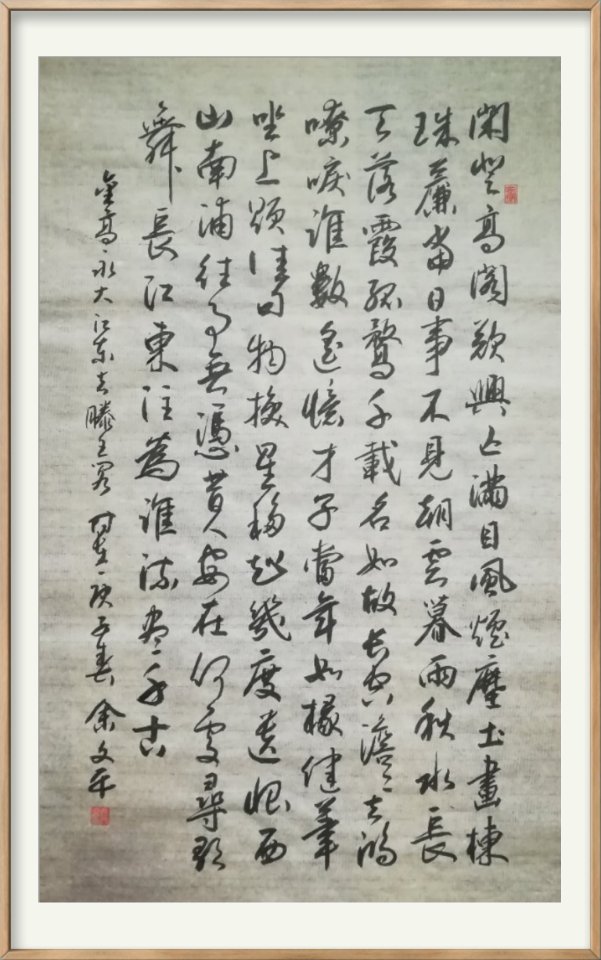 閑登高閣歎興亡滿目風煙塵土畫棟
珠簾當日事不見朝雲暮雨秋水長
天落霞孤鶩千載名如故長空澹澹去鴻
嘹唳誰數遙憶才子當年如椽健筆
坐上題佳句物換星移知幾度遺恨西
山南浦往事無憑昔人安在何處尋歌
舞長江東注為誰流盡千古
金高永大江东去滕王阁時在庚子春余文平